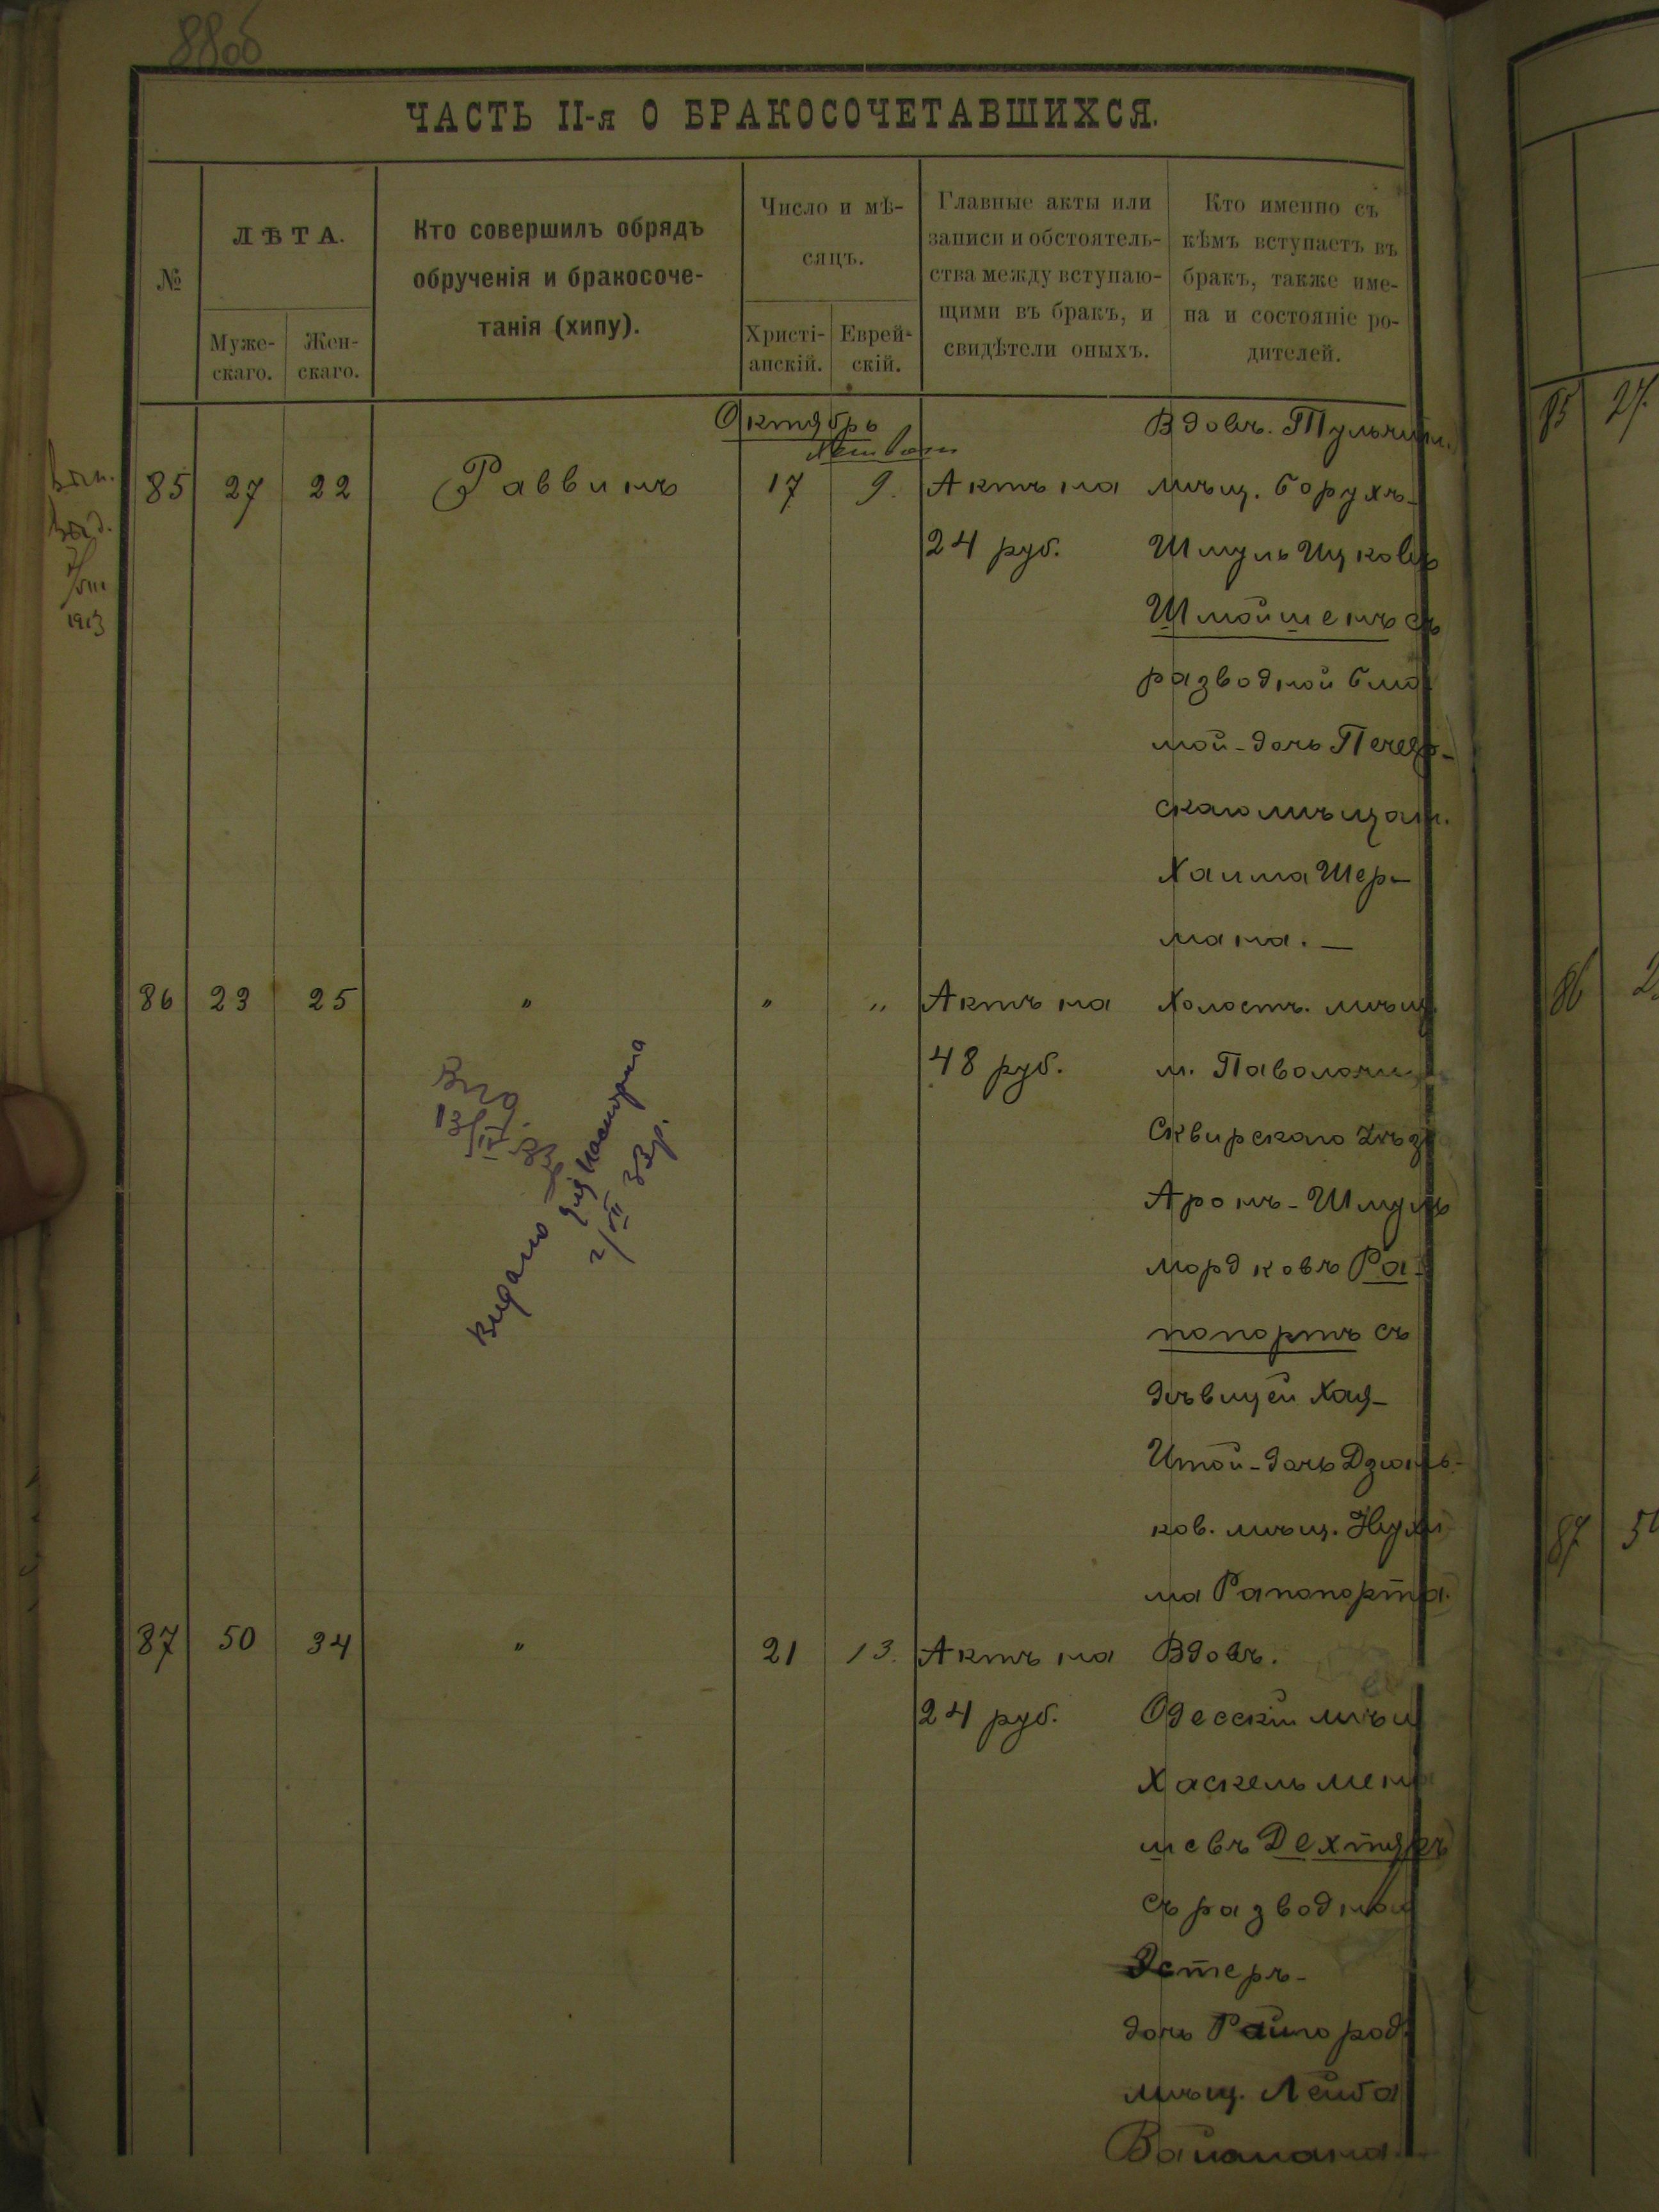 88об
ЧАСТЬ II-я О БРАКОСОЧЕТАВШИХСЯ.
№
ЛѢТА.
Муже-
скаго.
Жен-
скаго.
Кто совершилъ обрядъ
обрученія и бракосоче-
танія (хипу).
Число и мѣ-
сяцъ.
Христі-
анскій.
Еврей-
скій.
Главные акты или
записи и обстоятель-
ства между вступаю-
щими въ бракъ, и
свидѣтели оныхъ.
Кто именно съ
кѣмъ вступаетъ въ
бракъ, также име-
на и состояніе ро-
дителей.
Октябрь
85 27 22 Раввинъ 17 9. Актъ на
24 руб.
Вдовъ. Тульчин.
мѣщ. Борухъ-
Шмуль Ицковъ
Шмойшенъ съ
разводной Блю
мой-дочь Печер-
скаго мѣщан.
Хаима Шер-
мана. —
1913
86 23 25 " " " Актъ на
48 руб.
Холостъ. мѣщ.
м. Паволочи
Сквирскаго уѣз
Аронъ-Шмуль
Мордковъ Ра-
попортъ съ
дѣвицей Хая-
Итой-дочь Дзюнь-
ков. мѣщ. Нухи
ма Рапопорта.
Вид.
13/IV 33
Видано для паспорта
2/VII 33р.
87 50 34 " 21 13. Актъ на
24 руб.
Вдовъ.
Одесскій мѣщ
Хаскель Мень
шевъ Дехтяръ
съ разводной
Эстеръ-
дочь Райгород.
мѣщ. Лейба
Ваймана.
85 27.
86
87